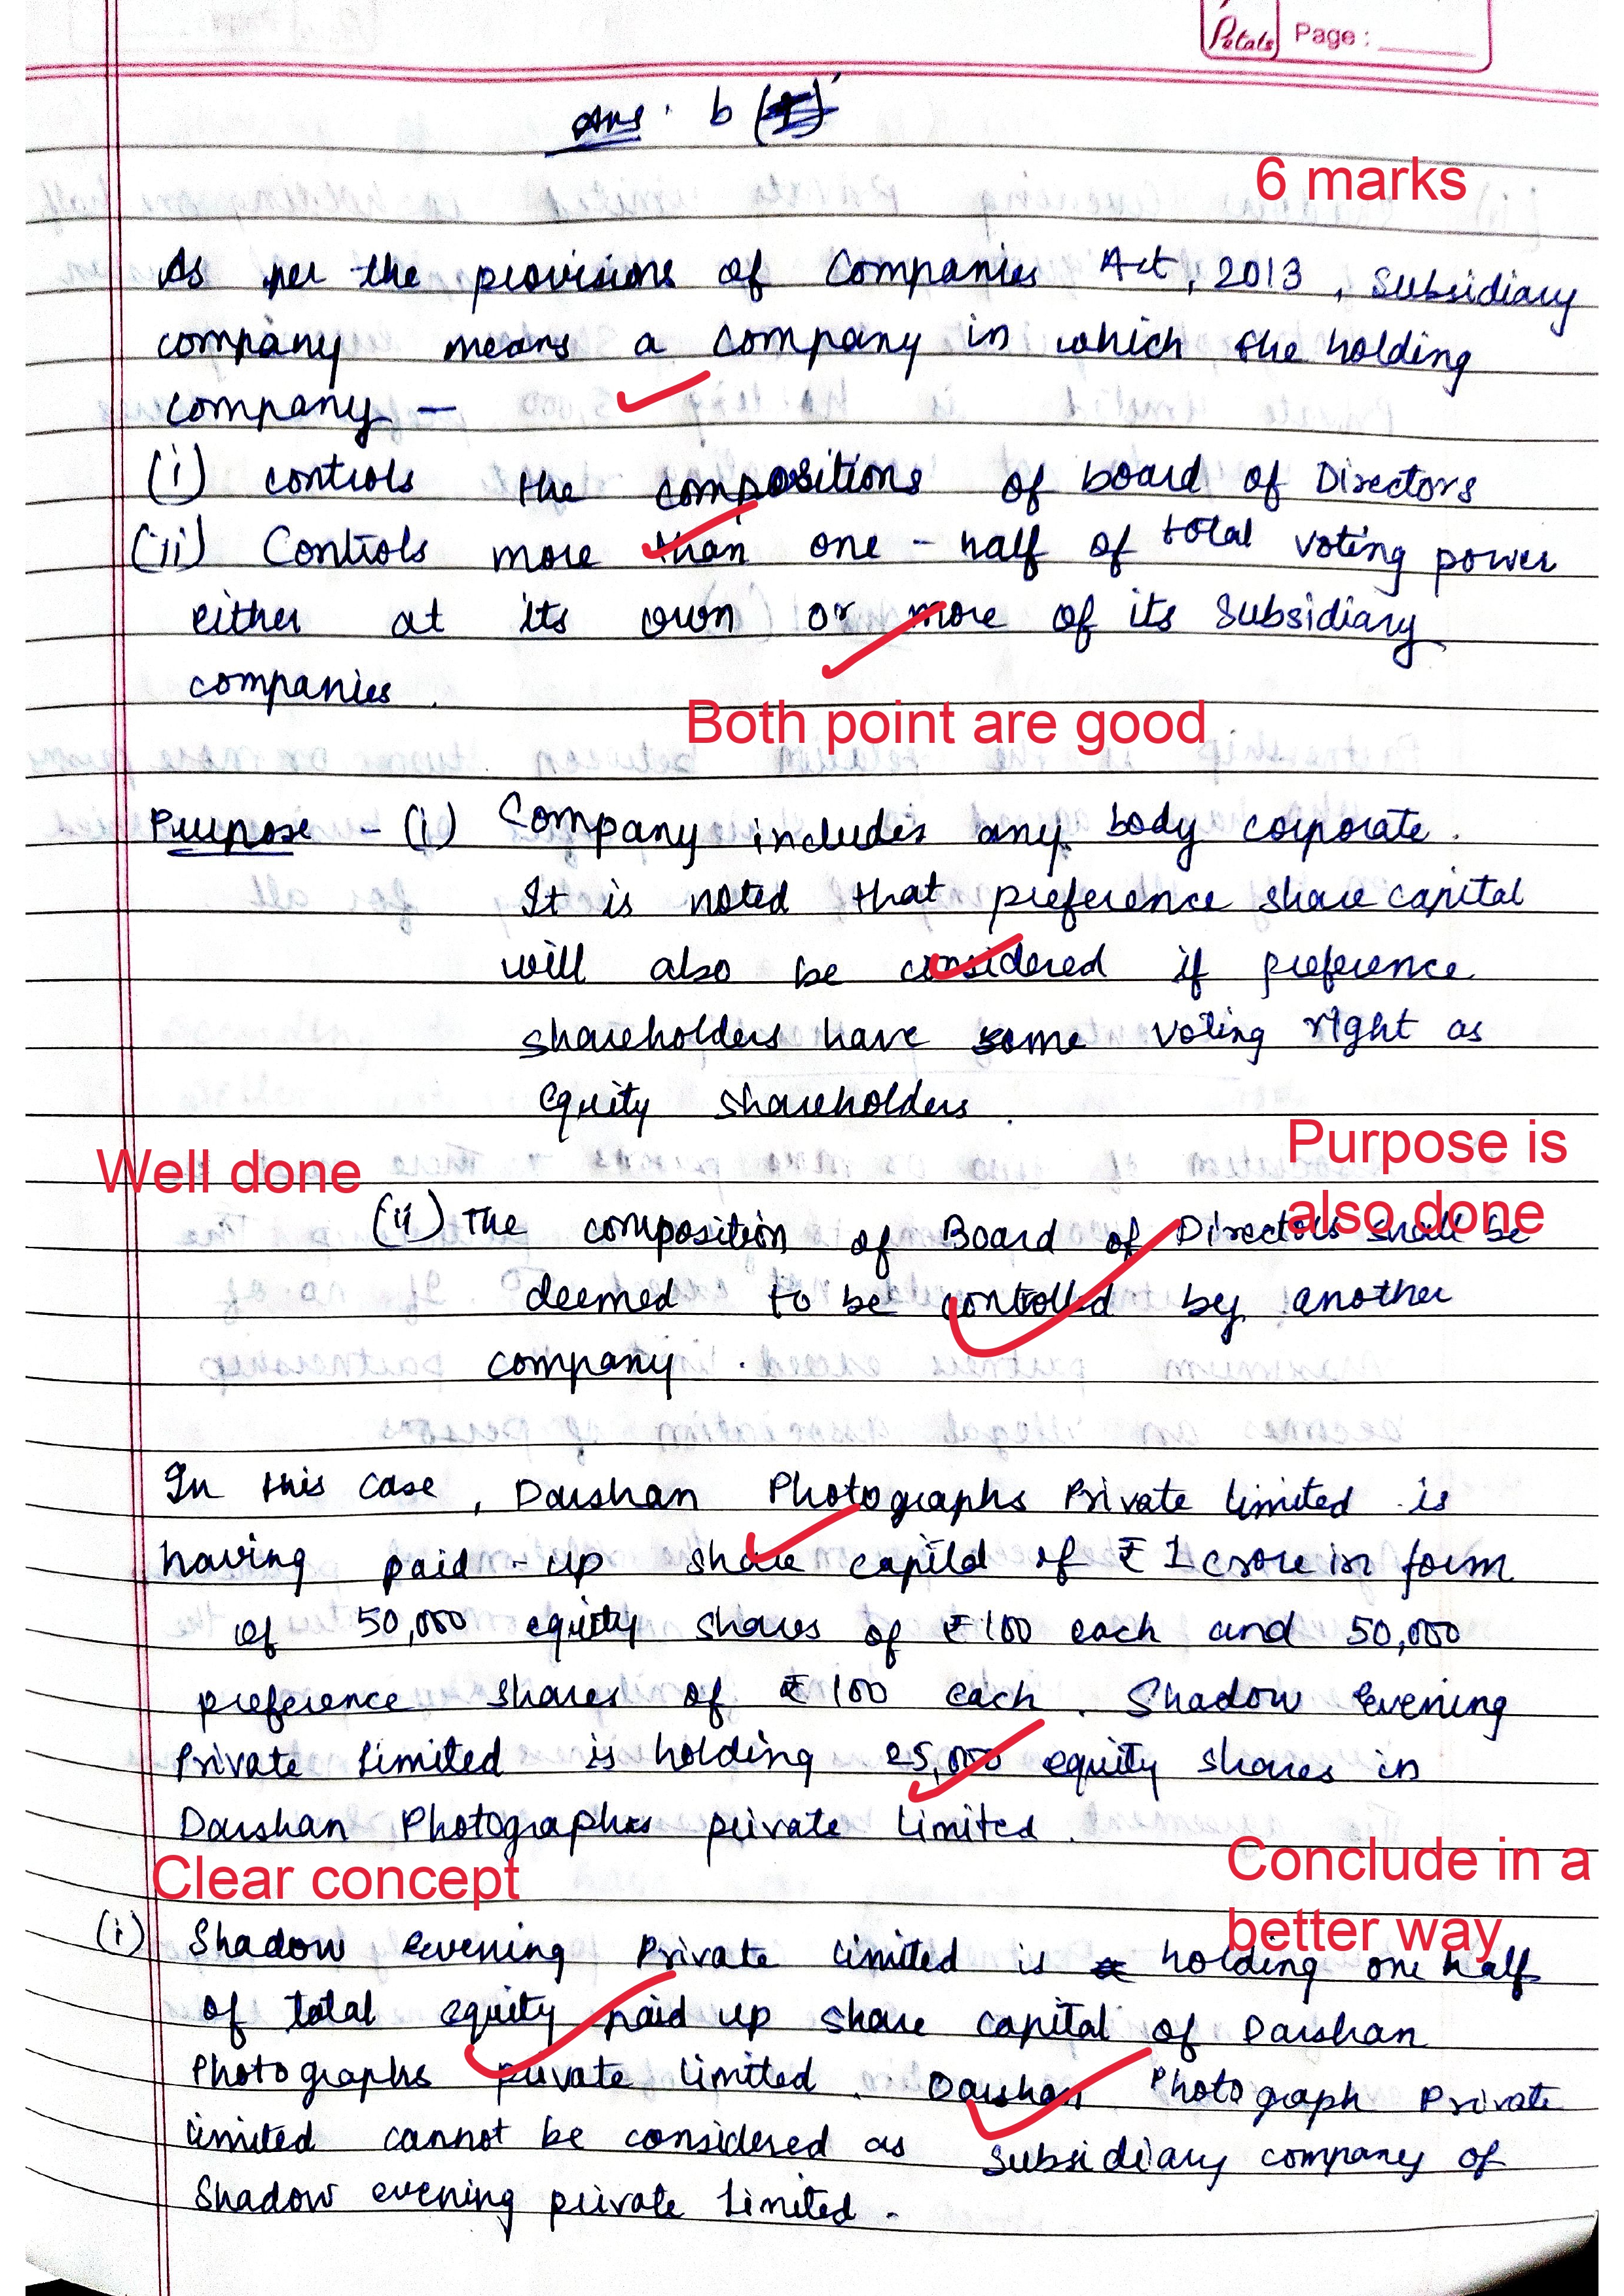 Petals Page :
Ans. b
6 marks
As per the provisions of Companies Act, 2013, Subsidiary
company means a company in which the holding
company —
(i) controls the compositions of board of Directors
(ii) Controls more than one-half of total voting power
either at its own or more of its subsidiary
companies.
Both point are good
Purpose - (i) Company includes any body corporate.
It is noted that preference share capital
will also be considered if preference
shareholders have same voting right as
equity shareholders.
Purpose is
Well done
also done
(ii) The composition of Board of Directors shall be
deemed to be controlled by another
company.
In this case, Darshan Photographs Private limited is
having paid-up share capital of ₹ 1 crore in form
of 50,000 equity shares of ₹ 100 each and 50,000
preference shares of ₹ 100 each. Shadow evening
Private Limited is holding 25,000 equity shares in
Darshan Photographs private Limited.
Clear concept
Conclude in a
better way
(i) Shadow evening Private limited is holding one half
of total equity paid up share capital of Darshan
Photographs private limited. Darshan Photograph Private
limited cannot be considered as subsidiary company of
Shadow evening private limited.